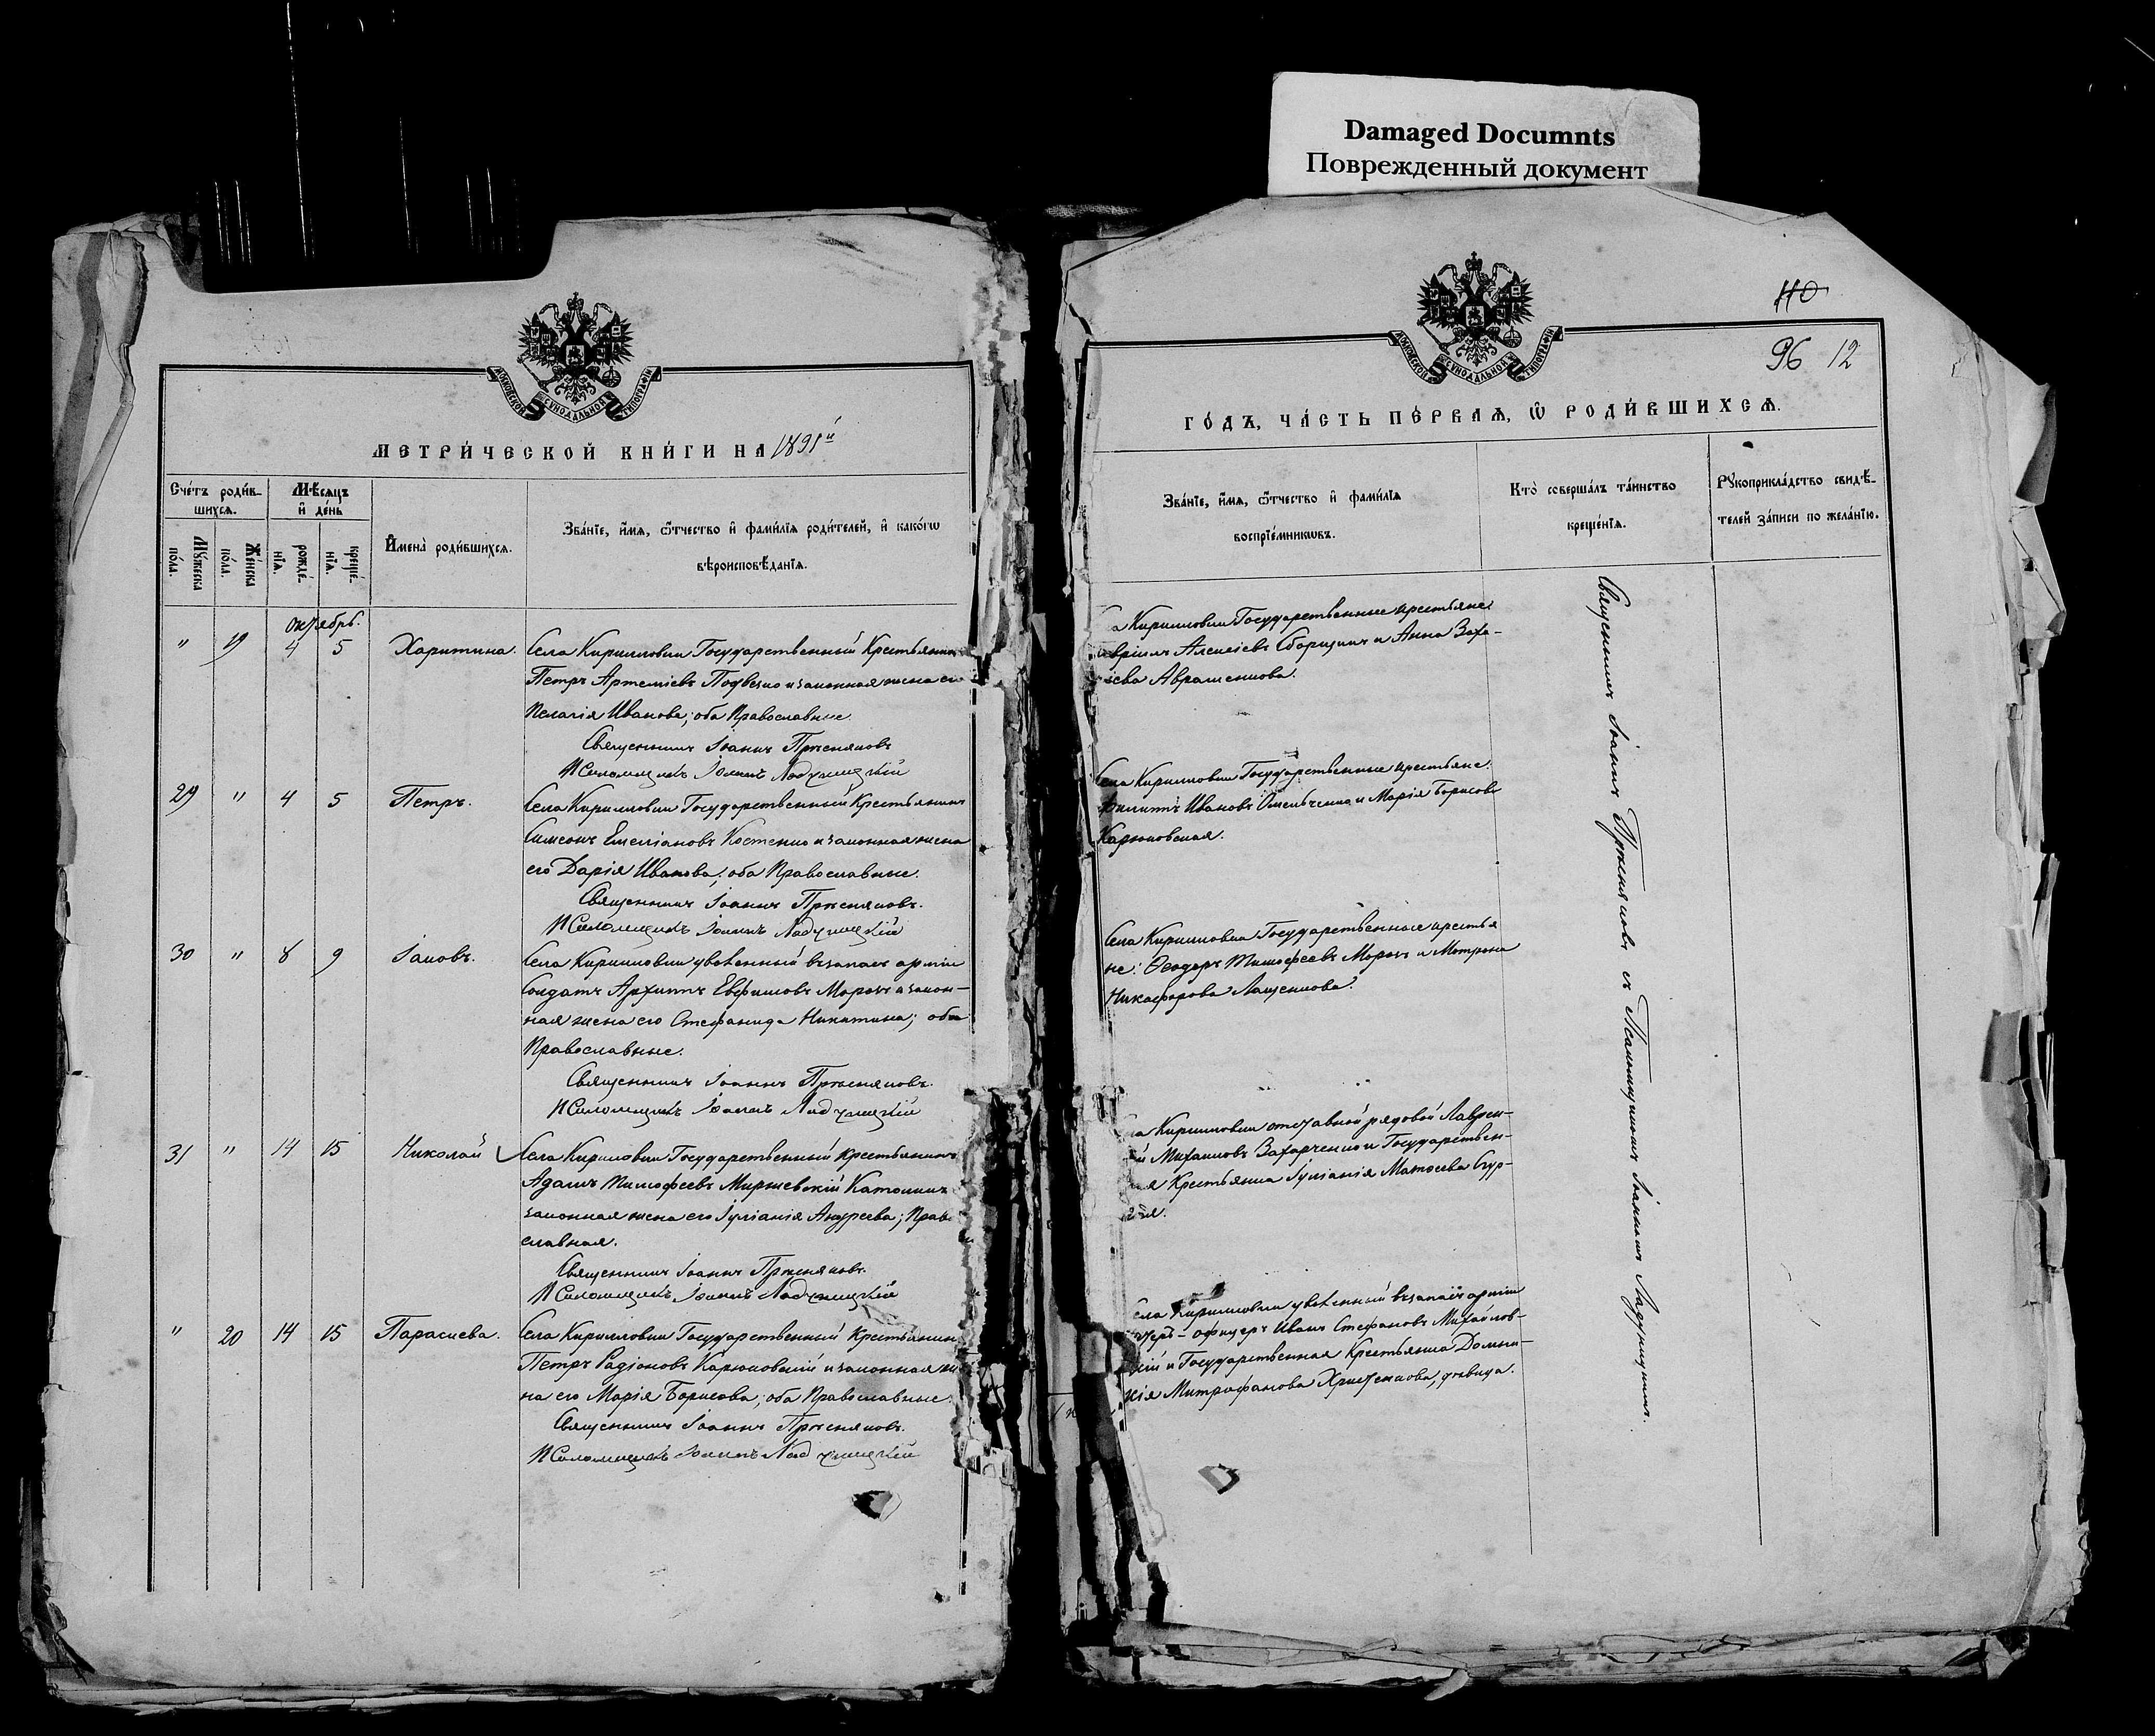 Damaged Documnts
Поврежденный документ
МОСКОВСКОЙ СѴНОДАЛЬНОЙ ТИПОГРАФІИ
МЕТРИ́ЧЕСКОЙ КНИ́ГИ НА 1891й
Сче́тъ роди́в-
шихсѧ.
Мѣ́сѧцъ
и҆ де́нь
Мꙋ́жеска
по́ла.
Же́нска
по́ла.
рожде́-
нїѧ.
креще́-
нїѧ.
И҆мена̀ роди́вшихсѧ.
Зва́нїе, и҆́мѧ, ѻ҆́тчество и҆ фами́лїѧ роди́телей, и҆ како́гѡ
вѣроисповѣ́данїѧ.
Октябрь.
" 19 4 5 Харитина.
Села Кирилловки Государственный Крестьянинъ
Петръ Артеміевъ Подвезко и законная жена его
Пелагія Иванова; оба Православные.
Священникъ Іоаннъ Пржсняковъ
Псаломщикъ Іоаннъ Ладухицкій
29 " 4 5 Петръ.
Села Кирилловки Государственный Крестьянинъ
Симеонъ Емеліановъ Костенко и законная жена
его Дарія Иванова; оба Православные.
Священникъ Іоаннъ
Псаломщикъ Іоаннъ
30 " 8 9 Іаковъ.
Села Кирилловки уволенный въ запасъ арміи
Солдатъ Архиппъ Евфимовъ Морозъ и закон-
ная жена его Стефанида Никитина; оба
Православные.
Священникъ Іоаннъ
Псаломщикъ Іоаннъ
31 " 14 15 Николай
Села Кириловки Государственный Крестьянинъ
Адамъ Тимофеевъ Католикъ
законная жена его Іуліанія Андреева; Право
славная.
Священникъ Іоаннъ
Псаломщикъ Іоаннъ
" 20 14 15 Параскева.
Села Кирилловки Государственный Крестьянин
Петръ Радіоновъ Карюковскій и законная же
на его Марія Борисова; оба Православные.
Священникъ Іоаннъ
Псаломщикъ Іоаннъ
110
96 12
МОСКОВСКОЙ СѴНОДАЛЬНОЙ ТИПОГРАФІИ
ГО́ДЪ, ЧА́СТЬ ПЕ́РВАѦ, Ѽ РОДИ́ВШИХСѦ.
Зва́нїе, и҆́мѧ, ѻ҆́тчество и҆ фами́лїѧ
воспрїе́мникѡвъ.
Кто̀ соверша́лъ та́инство
креще́нїѧ.
Рꙋкоприкла́дство свидѣ́-
телей за́писи по жела́нїю.
а Кирилловки Государственные крестьяне:
авріилъ Алексіевъ Сборщикъ и Анна Заха-
іева Авраменкова.
Села Кирилловки Государственные крестьяне:
Филиппъ Ивановъ Омельченко и Марія Борисова
Карюковская.
Села Кирилловки Государственные крестья
не: Ѳеодоръ Тимофеевъ Морозъ и Матрона
Никифорова Лащенкова.
ла Кирилловки отставной рядовой Лаврен-
й Михаиловъ Захарченко и Государствен-
ая Крестьянка Іуліанія Матвеева Сур-
кая.
ела Кирилловки уволенный въ запасъ арміи
унтеръ-офицеръ Иванъ Стефановъ Михайлов-
скій и Государственная Крестьянка Домни-
кія Митрофанова Христенкова, дѣвица.
Священникъ Іоаннъ съ Псаломщикомъ Іоанномъ